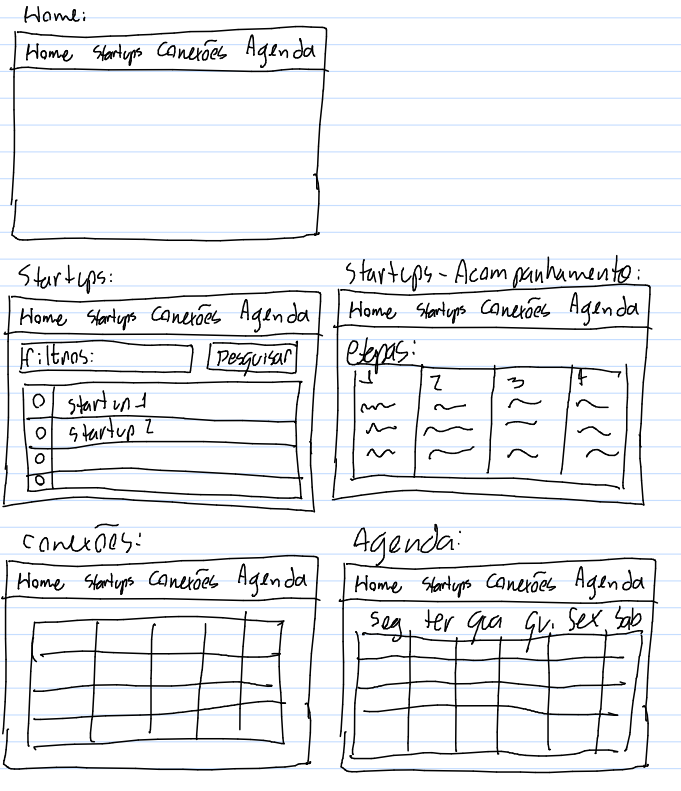 Home:
Home Startups Conexões Agenda
Startups:
Home Startups Conexões Agenda
Filtros: Pesquisar
Startup 1
Startup 2
Startups - Acompanhamento:
Home Startups Conexões Agenda
etapas:
1 2 3 4
Conexões:
Home Startups Conexões Agenda
Agenda:
Home Startups Conexões Agenda
Seg ter qua qui. Sex Sab